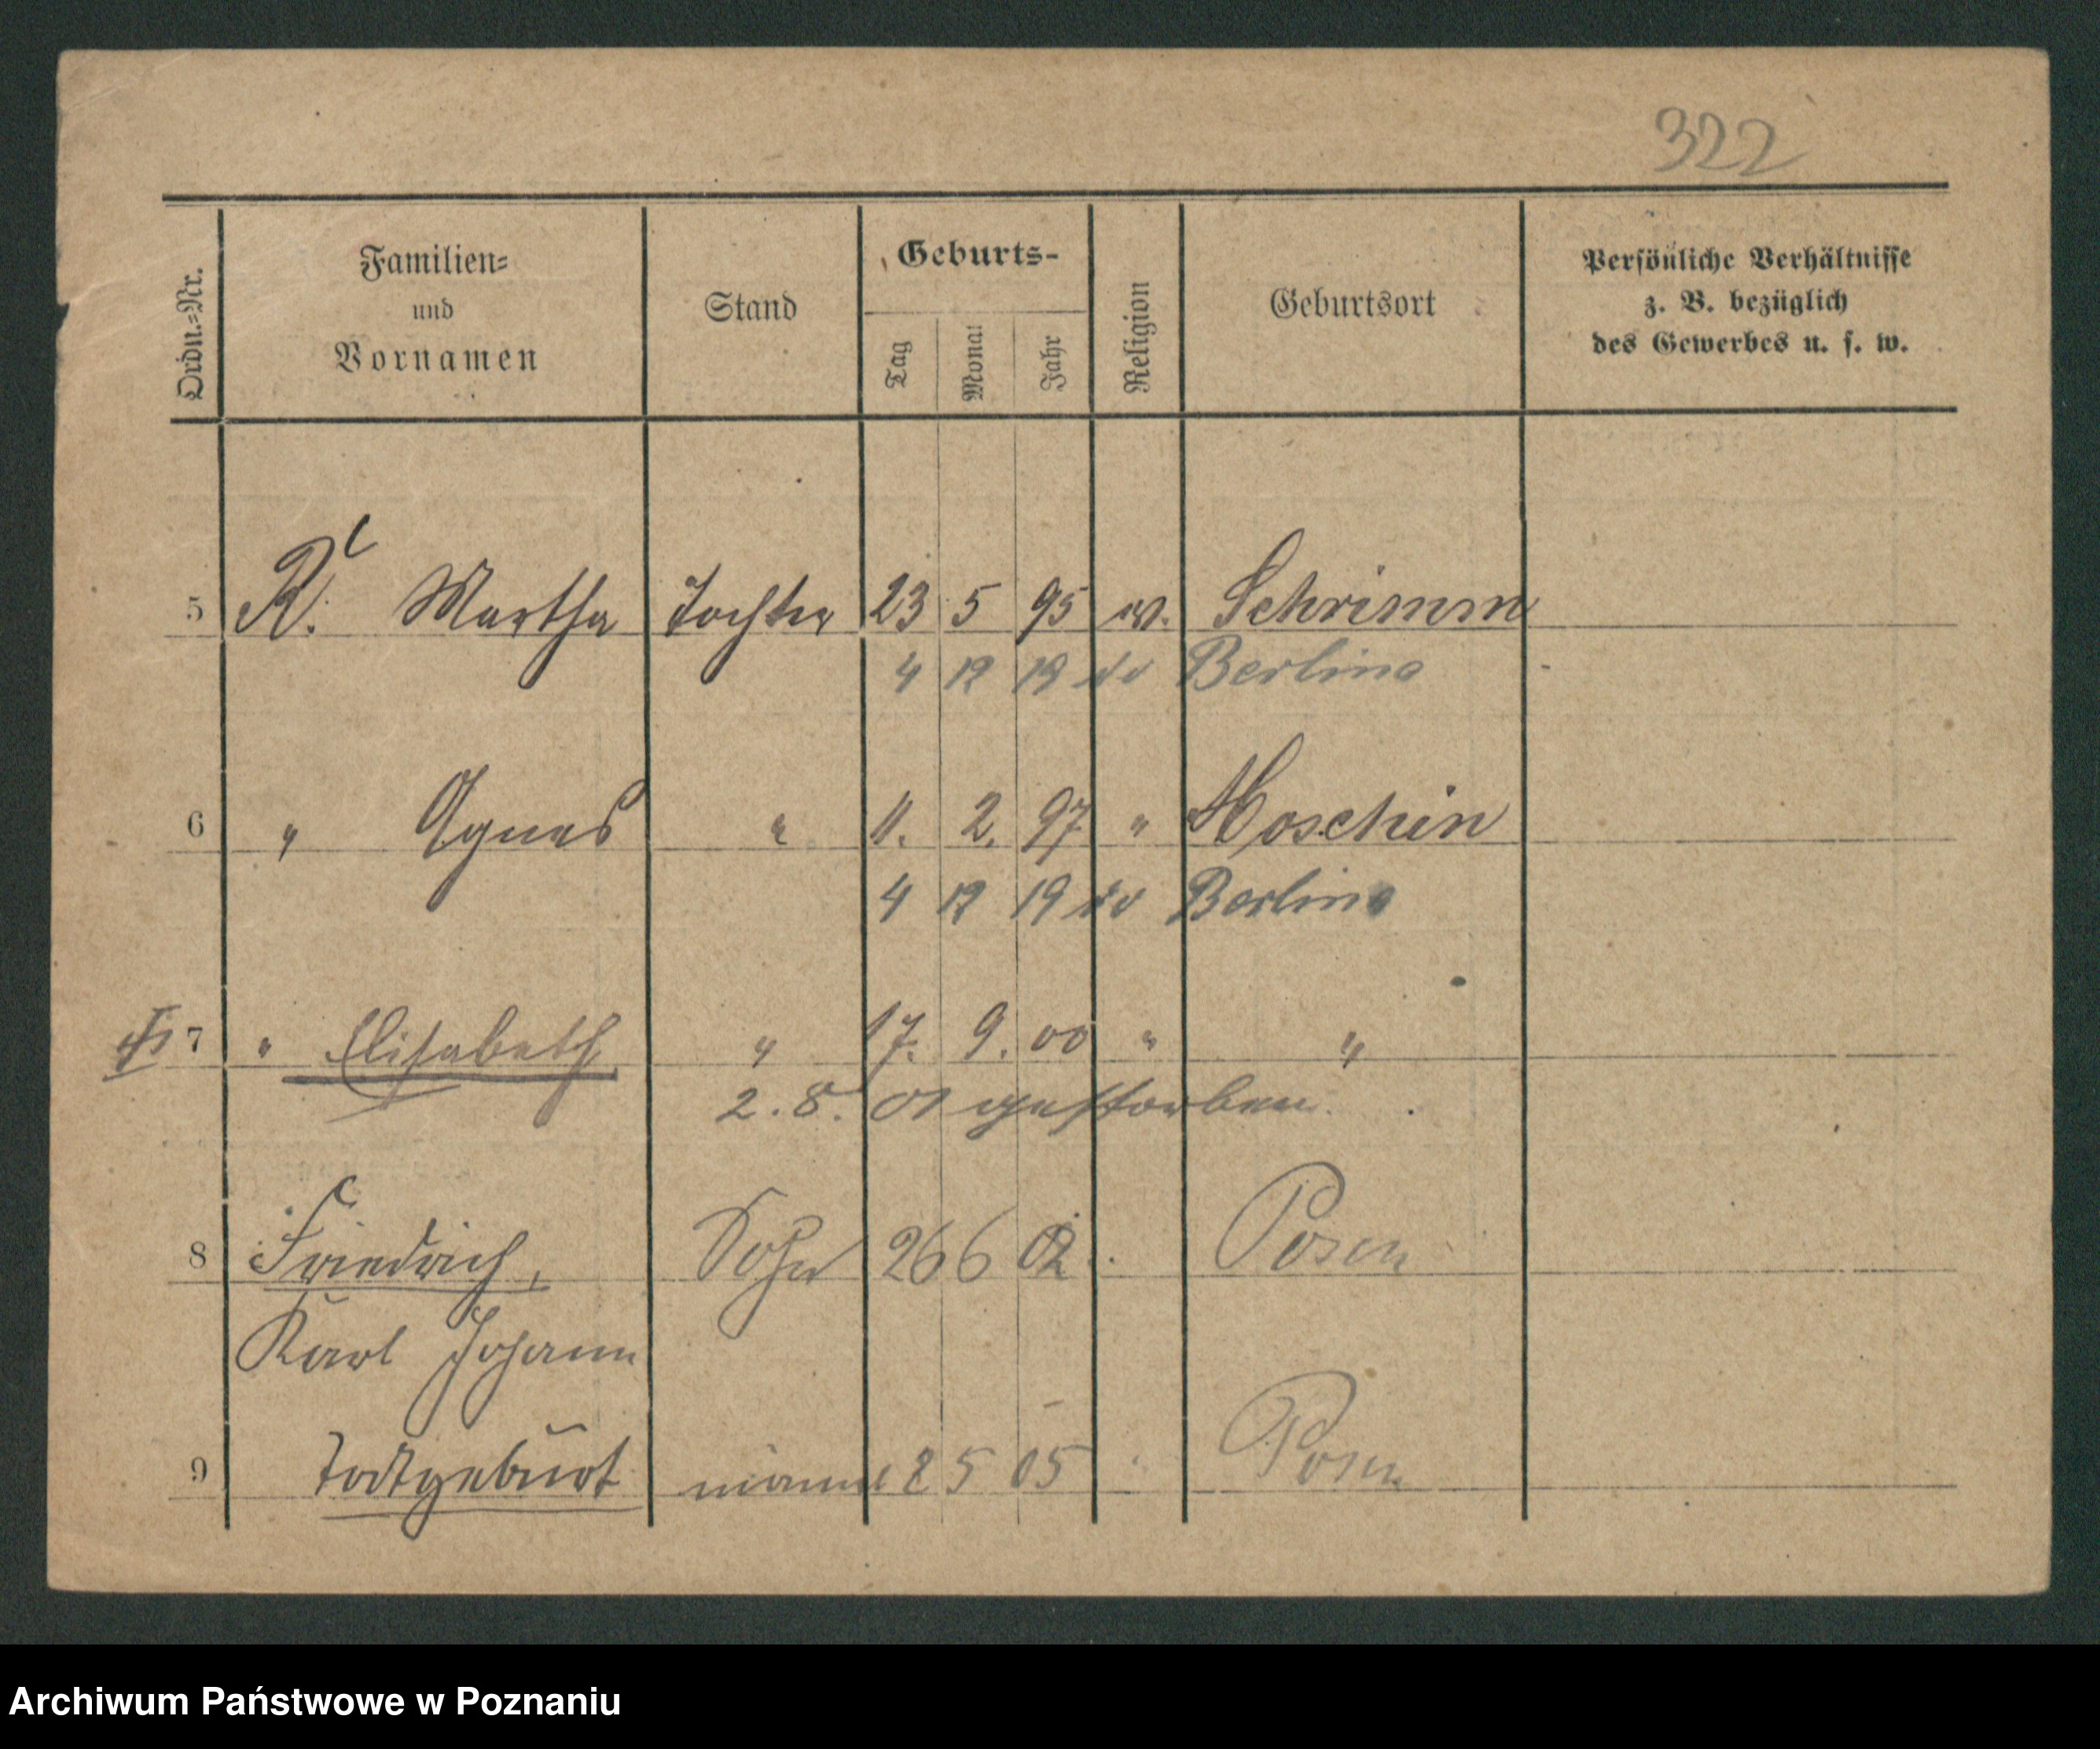 322
Ordn.-Nr. Familien- und Vornamen Stand Geburts- Tag Monat Jahr Religion Geburtsort Persönliche Verhältnisse z. B. bezüglich des Gewerbes u. s. w.
5 R. Martha Tochter 23 5 95 ev. Schrimm
4 12 19 do Berlin
6 " Agnes " 11. 2. 97 " Moschin
4 12 19 do Berlin
7 " Elisabeth " 17. 9. 00 " "
2. 8. 01 gestorben.
8 Friedrich, Sohn 26 6 02 Posen
Karl Johann
9 Todtgeburt männl 2 5 05 " Posen
Archiwum Państwowe w Poznaniu